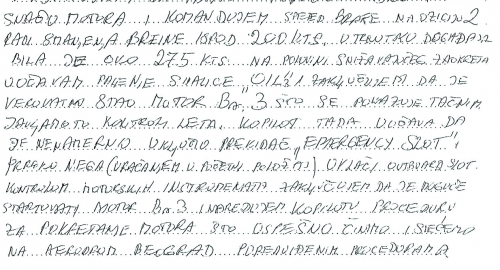 SNAGU MOTORA I KOMANDUJEM SPEED BRAKE NA UZICIN 2
RADI SMANJENJA BRZINE ISPOD 200 KTS. U TRENUTKU DOGADJAJA
BILA JE OKO 275 KTS. NA POLOVINI ZAOKRETA
UOČAVAM PALJENJE SIJALICE „OIL" I ZAKLJUČUJEM DA JE
VEROVATNO STAO MOTOR Br. 3 ŠTO SE POKAZUJE TAČNIM
JAVLJAMO TO KONTROLI LETA. KOPILOT TADA UOČAVA DA
JE NENAMERNO UKLJUČIO PREKIDAČ „EMERGENCY SLOT" I
PREKO NJEGA (VRAĆANJEM U POČETNI POLOŽAJ) UVLAČI OUTBOARD SLOT.
KONTROLOM MOTORSKIH INSTRUMENATA ZAKLJUČUJEM DA JE MOGUĆE
STARTOVATI MOTOR Br. 3 I NAREDJUJEM KOPILOTU PROCEDURU
ZA POKRETANJE MOTORA ŠTO USPEŠNO ČINIMO I SLEĆEMO
NA AERODROM BEOGRAD PO PREDVIDJENIM PROCEDURAMA